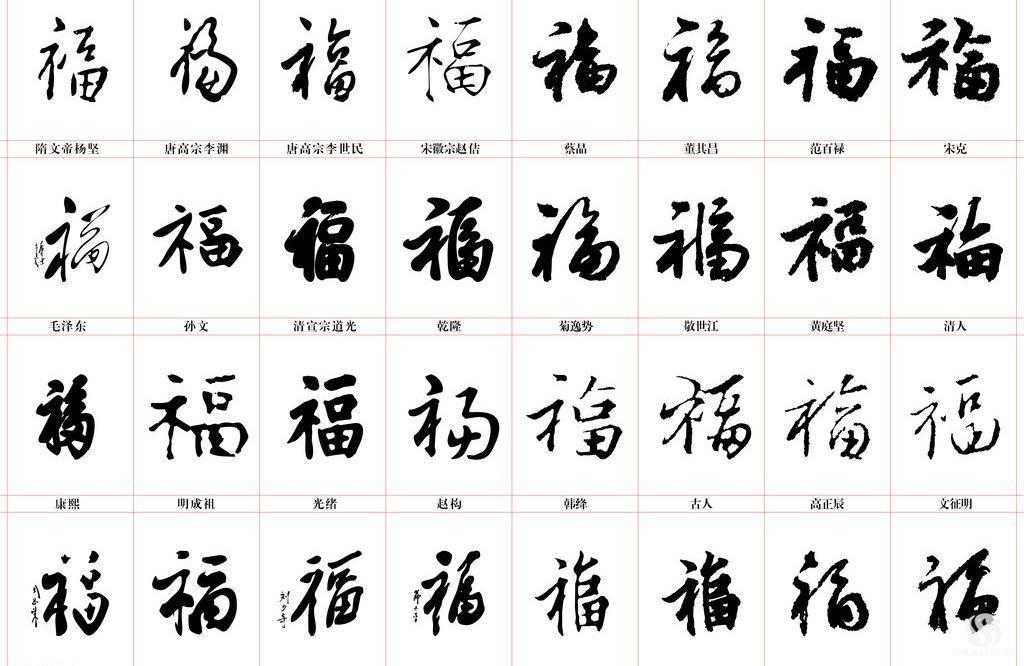 福 福 福 福 福 福 福 福
隋文帝杨坚 唐高宗李渊 唐高宗李世民 宋徽宗赵佶 蔡品 董其昌 范百禄 宋克
福 福 福 福 福 福 福 福
毛泽东 孙文 清宣宗道光 乾隆 菊逸势 敬世江 黄庭坚 清人
福 福 福 福 福 福 福 福
康熙 明成祖 光绪 赵构 韩绛 古人 高正辰 文征明
福 福 福 福 福 福 福 福